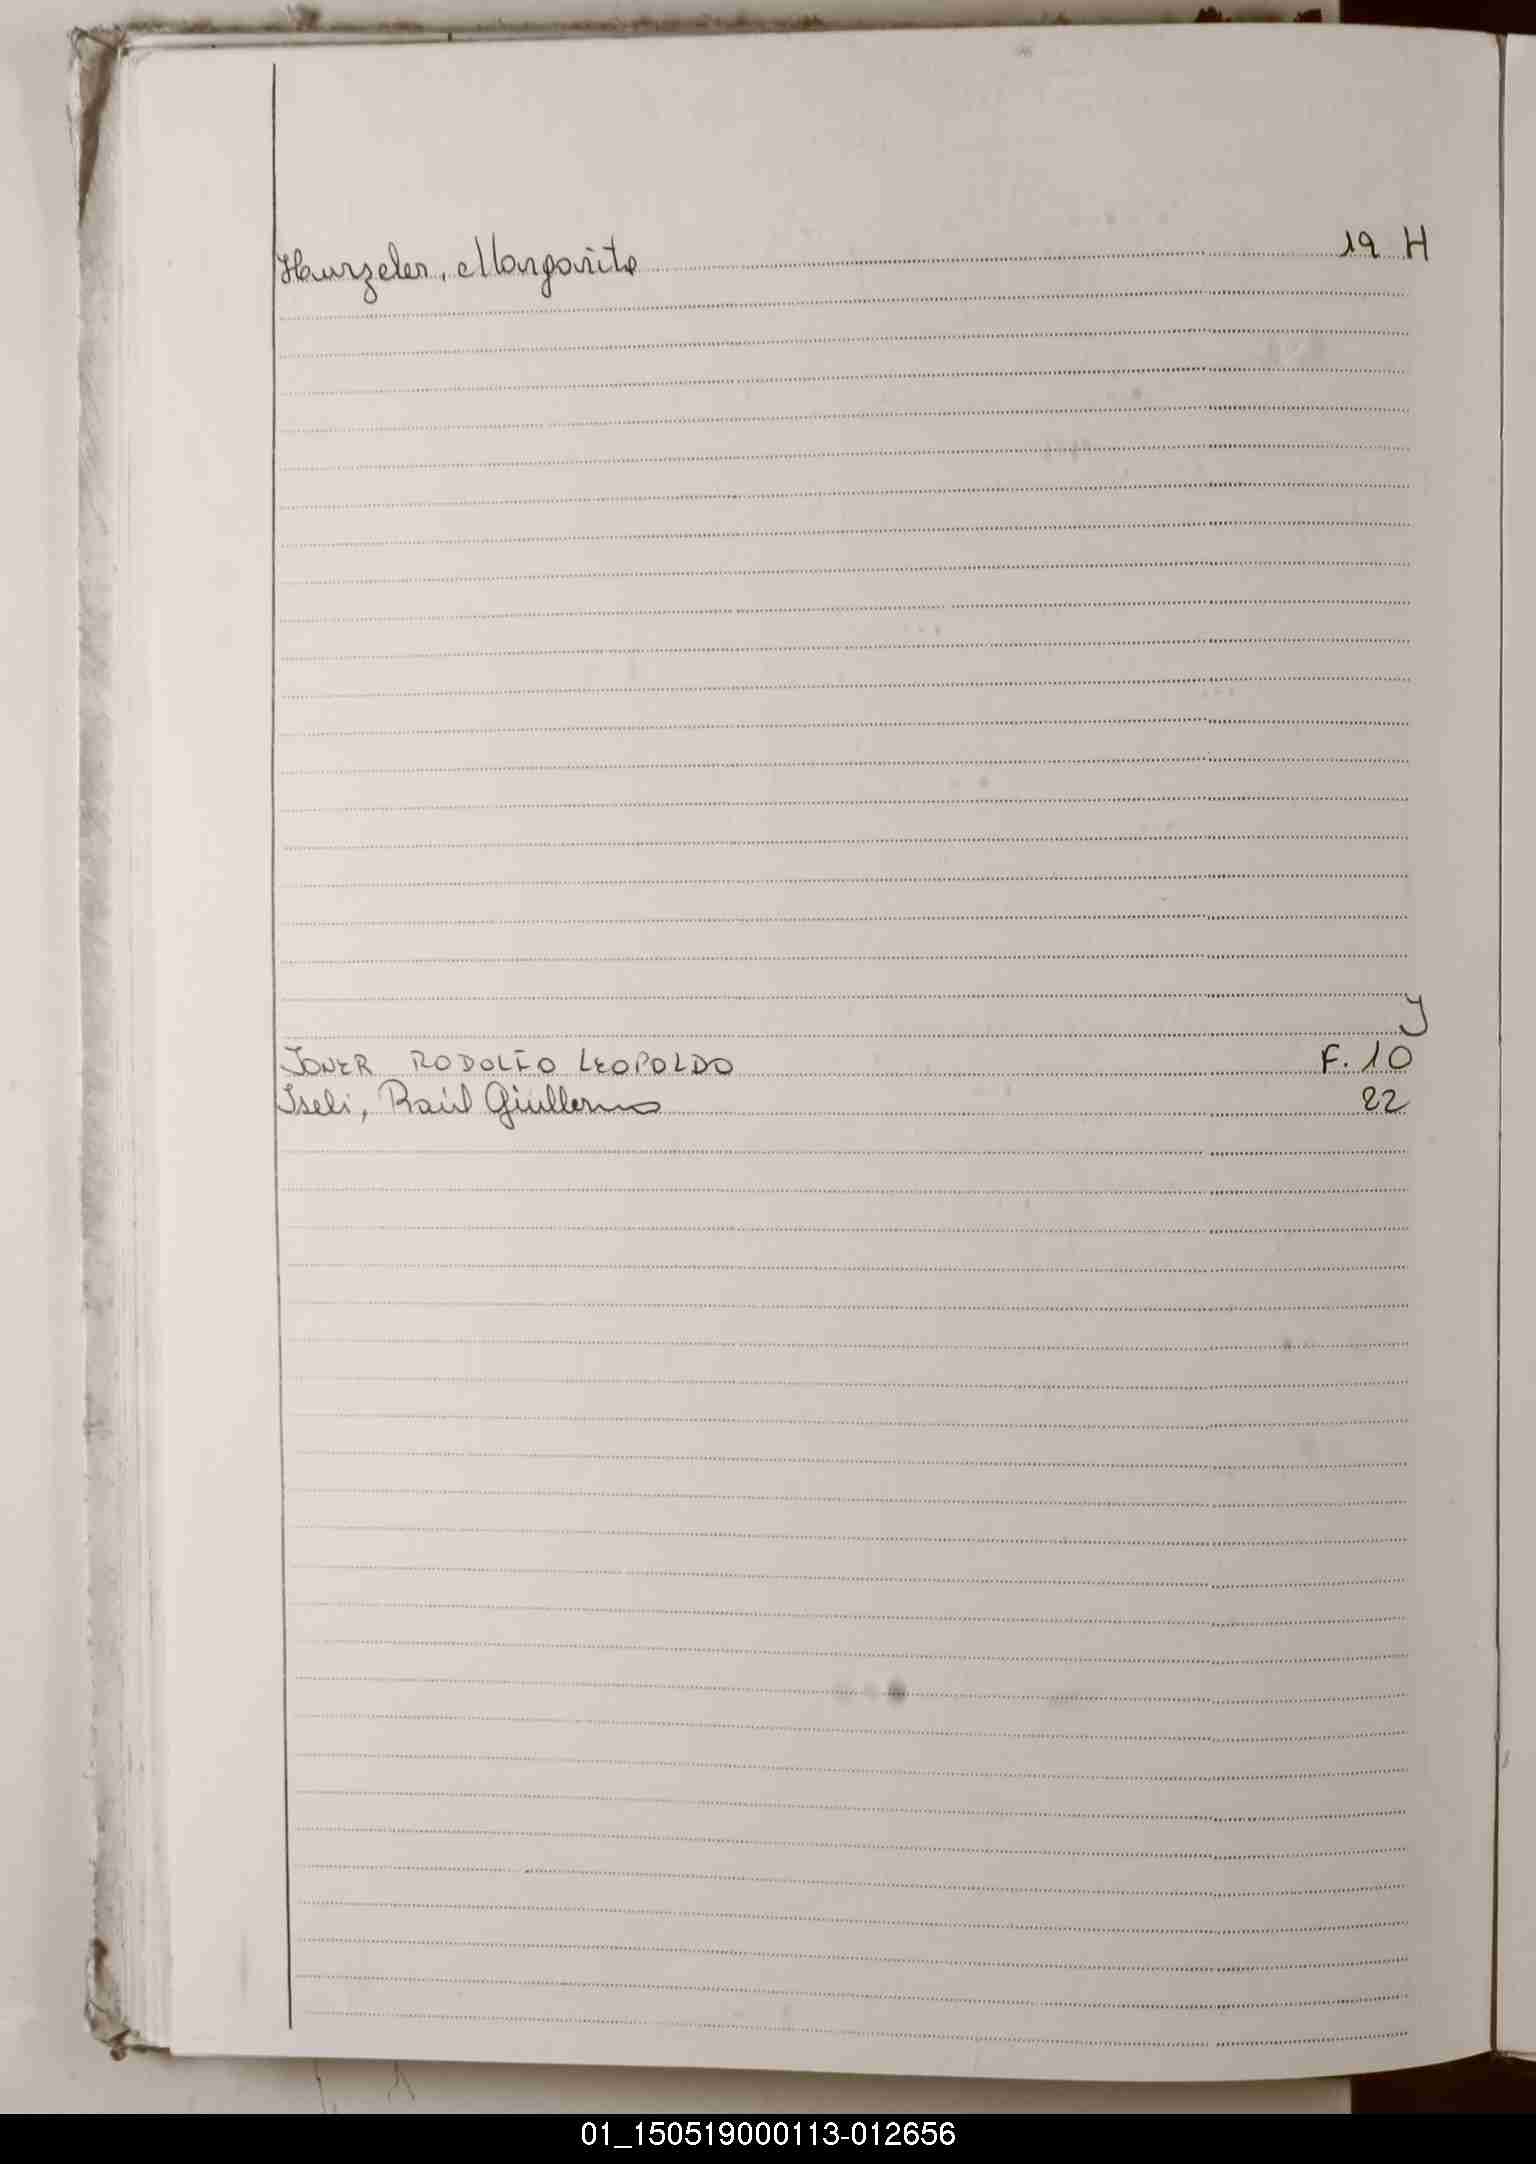 Hurzeler, Margarita 19 H
I
IONER RODOLFO LEOPOLDO F. 10
Iseli, Raúl Giullermo 22
01_150519000113-012656